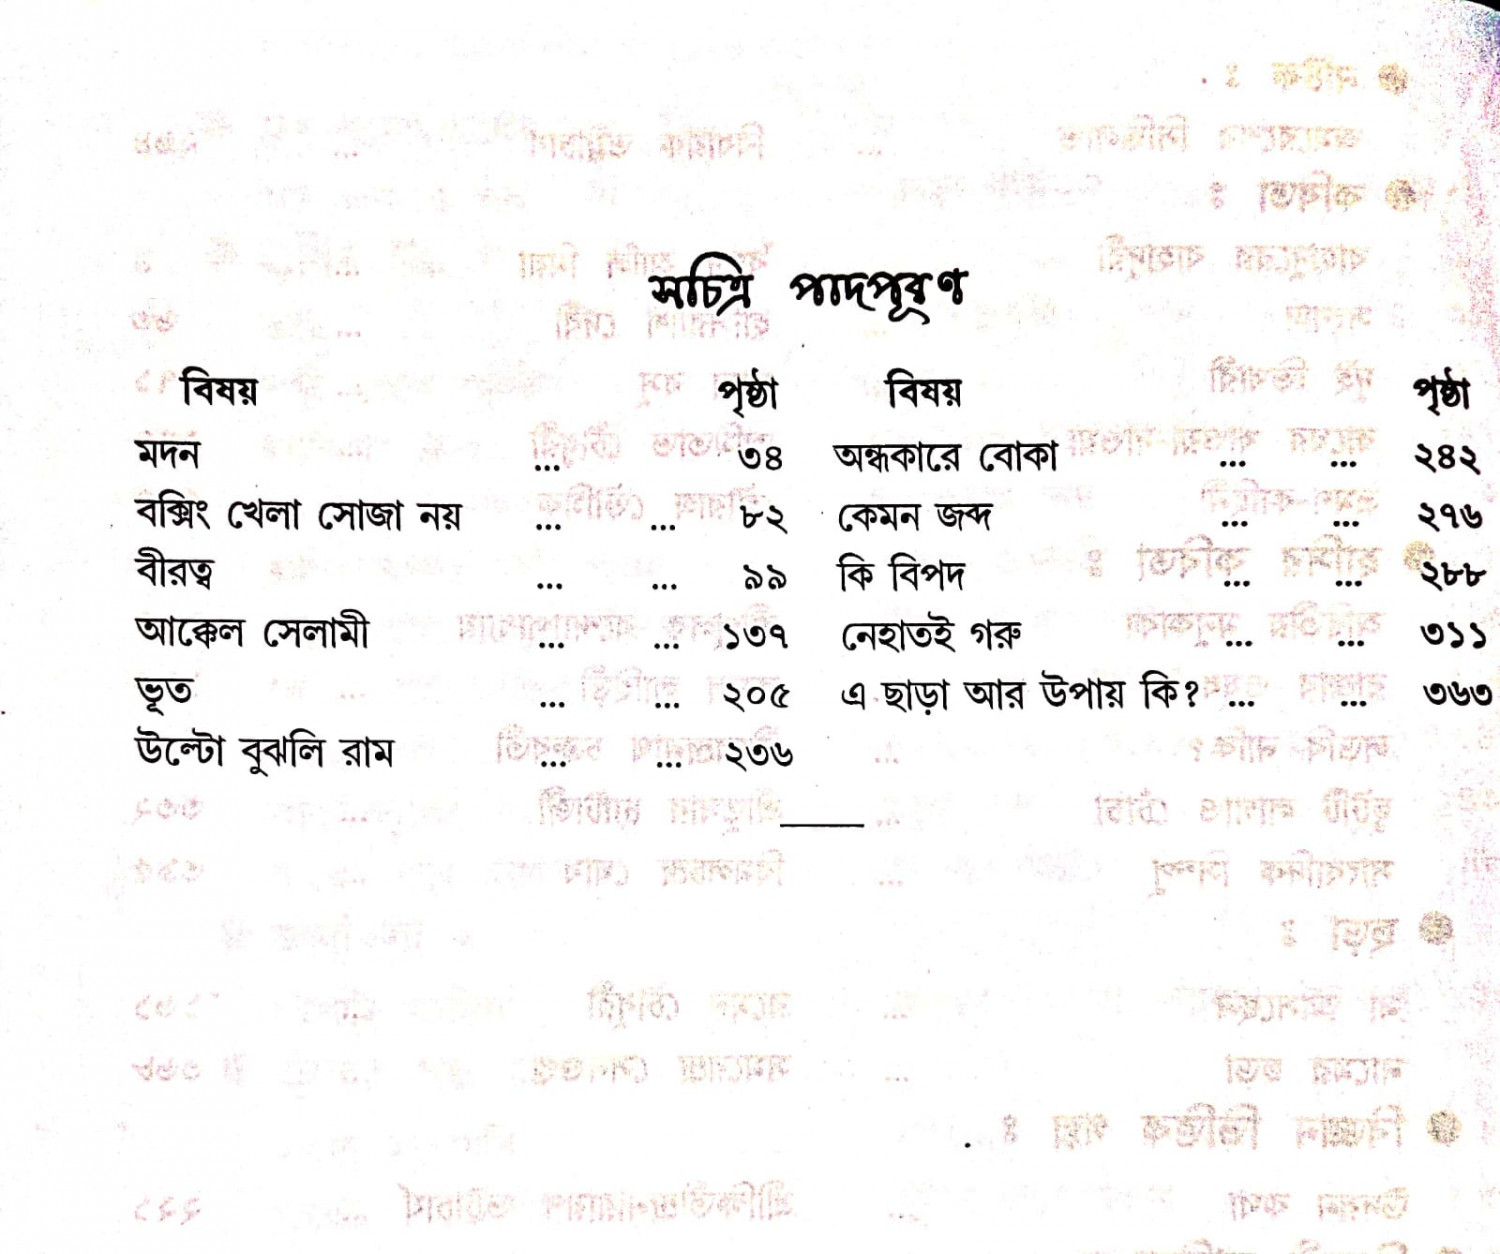 সচিত্র পাদপূরণ
বিষয় পৃষ্ঠা
মদন ... ৩৪
বক্সিং খেলা সোজা নয় ... ... ৮২
বীরত্ব ... ... ৯৯
আক্কেল সেলামী ... ... ১৩৭
ভূত ... ... ২০৫
উল্টো বুঝলি রাম ... ... ২৩৬
বিষয় পৃষ্ঠা
অন্ধকারে বোকা ... ... ২৪২
কেমন জব্দ ... ... ২৭৬
কি বিপদ ... ... ২৮৮
নেহাতই গরু ... ... ৩১১
এ ছাড়া আর উপায় কি? ... ... ৩৬৩